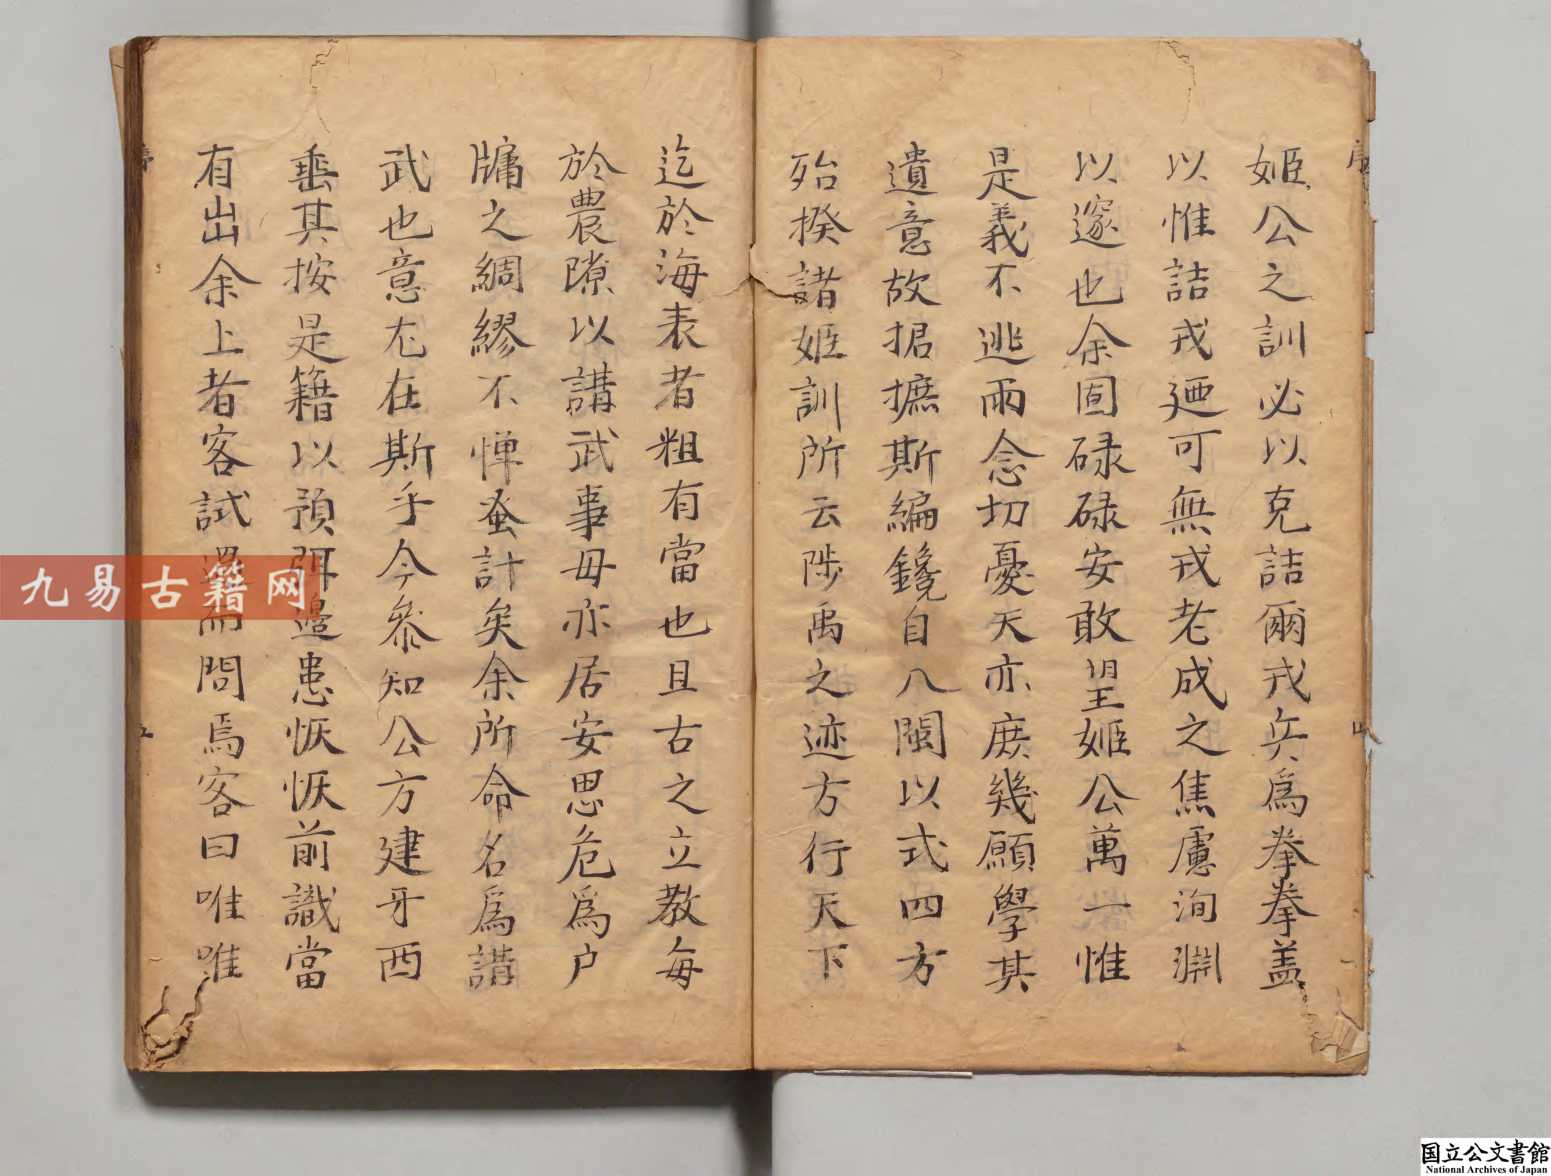 姬公之訓必以克詰爾戎兵爲拳拳盖
以惟詰戎廼可無戎老成之焦慮洵淵
以邃也余固碌碌安敢望姬公萬一惟
是義不逃雨念切憂天亦庶幾願學其
遺意故捃摭斯編鑱自八閩以式四方
殆揆諸姬訓所云陟禹之迹方行天下
迄於海表者粗有當也且古之立教每
於農隙以講武事毋亦居安思危爲户
牖之綢繆不憚蚤計矣余所命名爲講
武也意尤在斯乎今叅知公方建牙西
垂其按是籍以預弭邊患恢恢前識當
有出余上者客試過而問焉客曰唯唯
九易古籍网
国立公文書館
National Archives of Japan